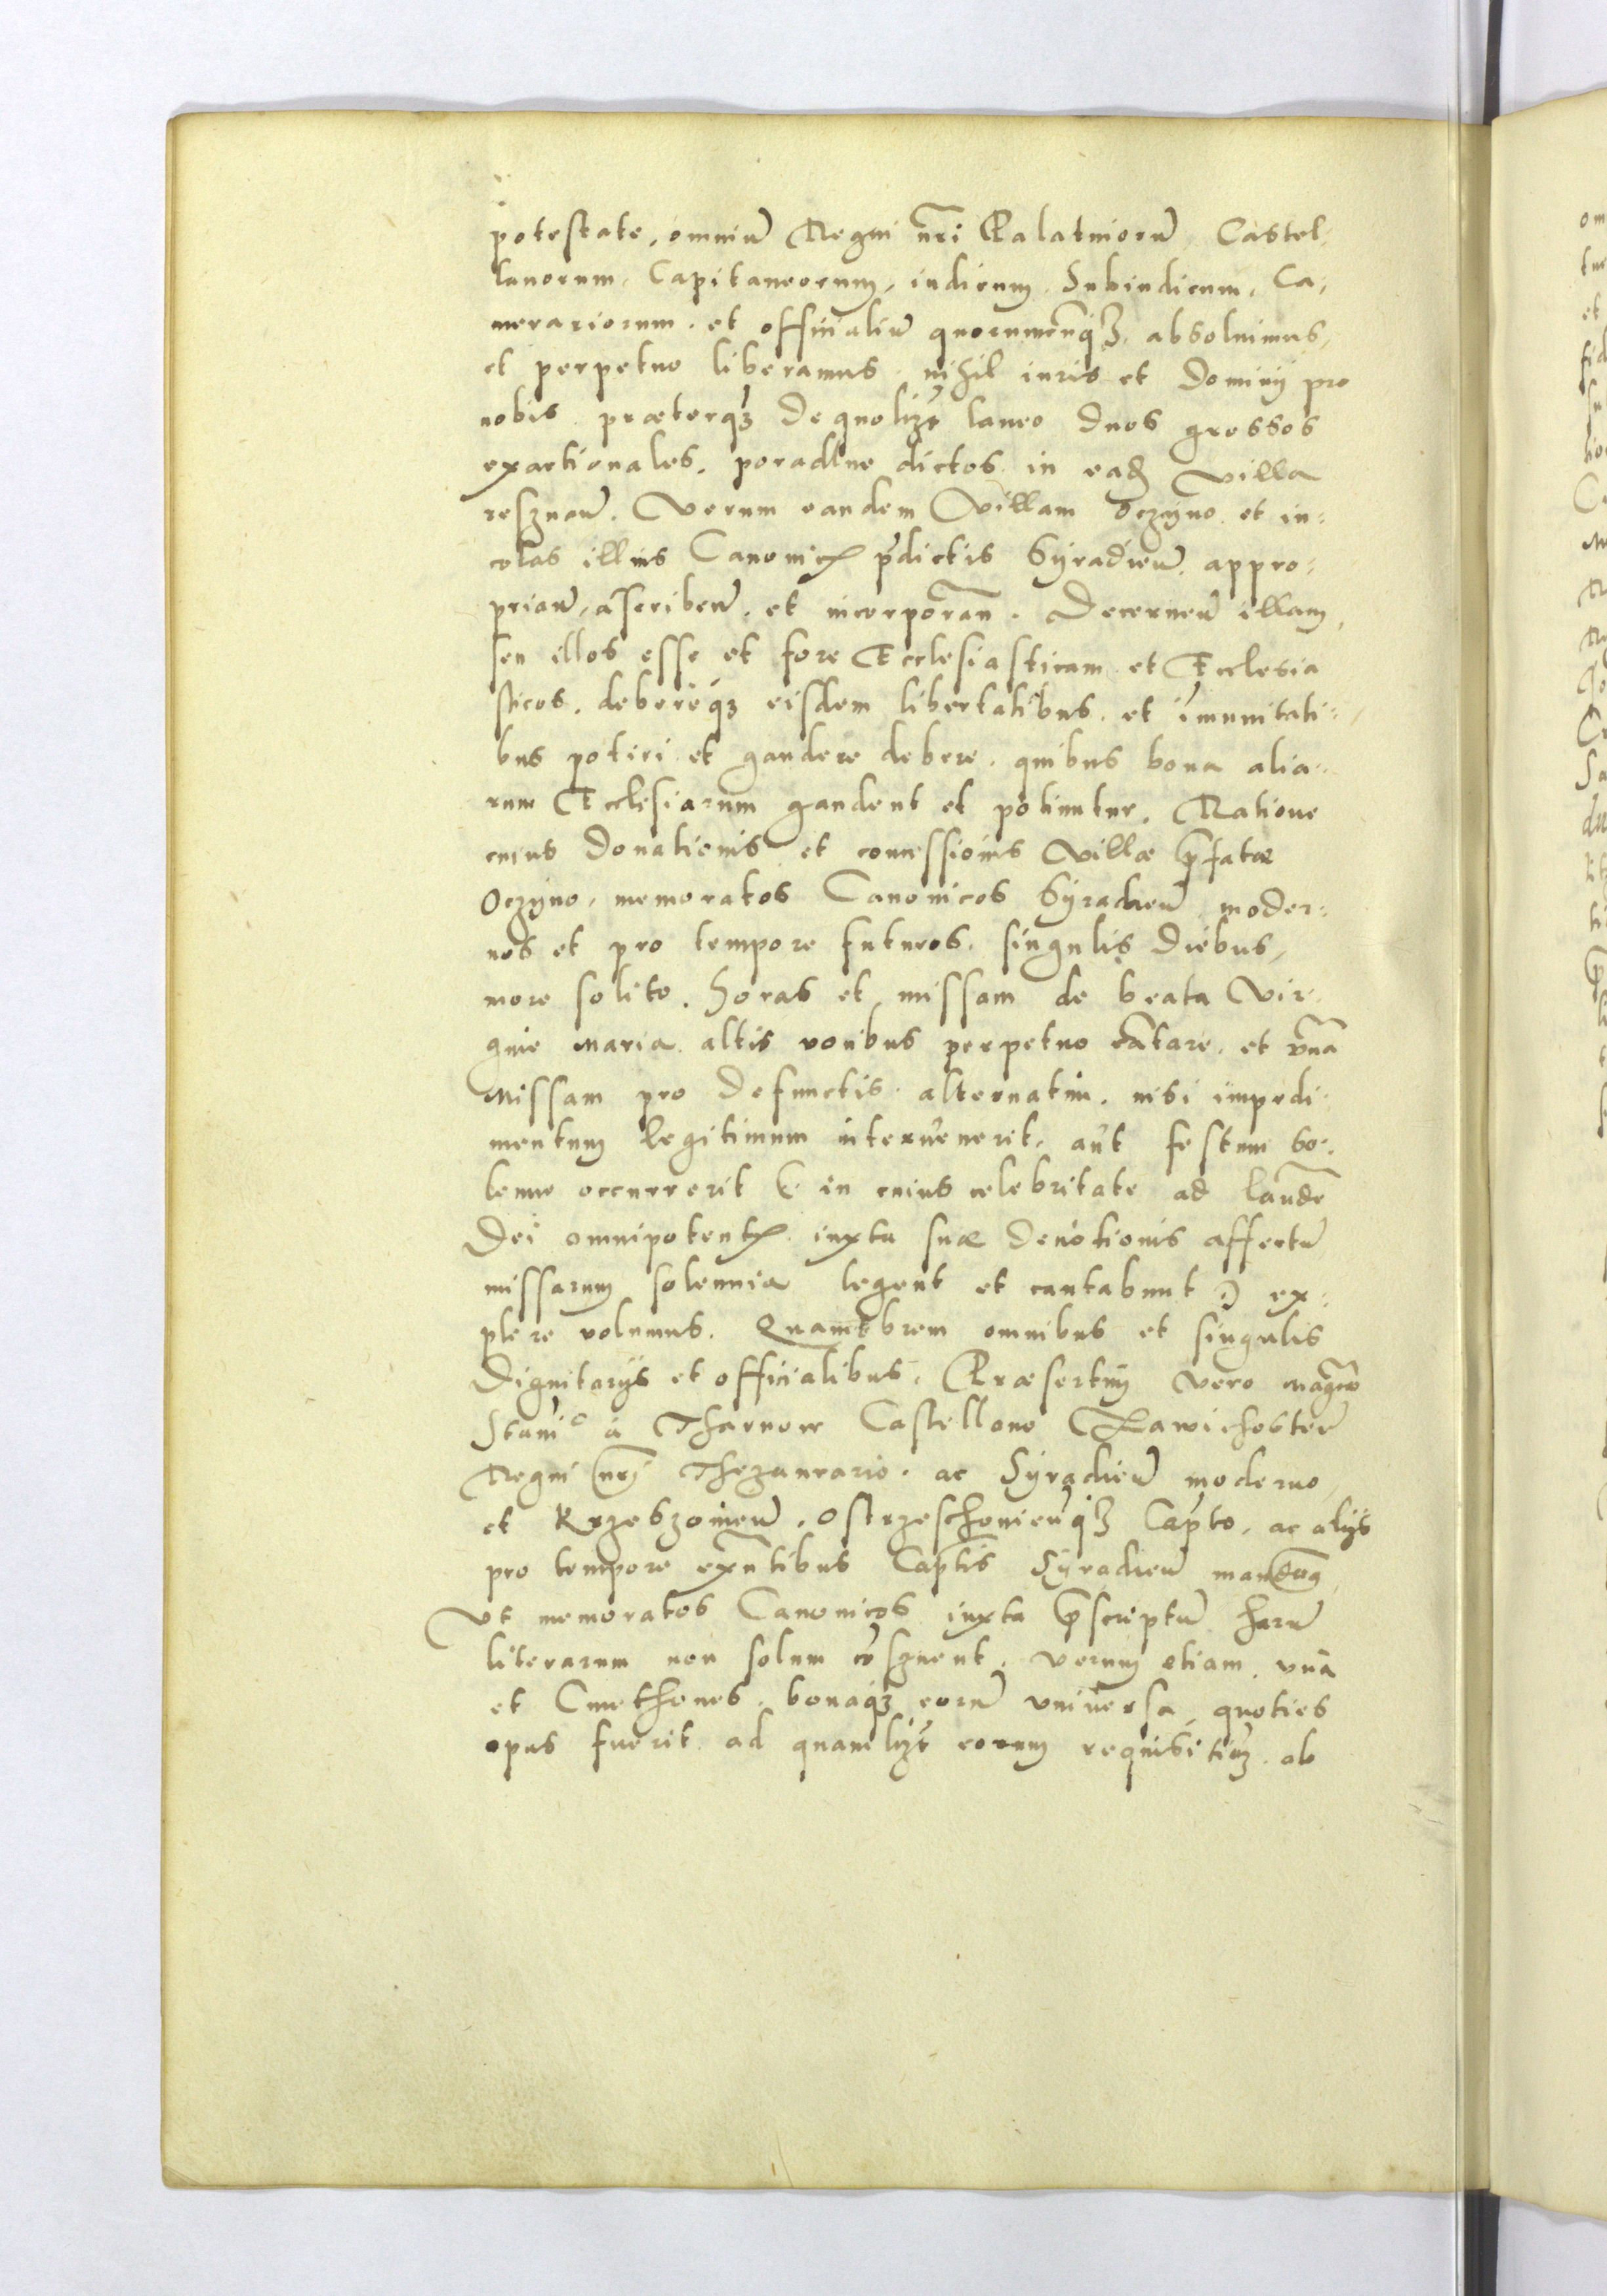 potestate, omniū Regni nr̄i Palatinorū Castel-
lanorum, Capitaneorum, iudicum, Subiudicum, Ca-
merariorum, et officialiū quorumcūqȝ, absoluimus,
et perpetuo liberamus, nihil iuris et Dominij pro
nobis, præterqȝ De quolibȝt laneo duos grossos
exactionales, poradlne dictos, in eadȝ villa
reszuoū. Verum eandem Villam Oczyno, et in-
colas illius Canonicȝ p̄dictis Syradieū, appro-
priaū, ascribeū, et incorporan̄. Decerneū illam,
seu illos esse et fore Ecclesiasticam et Ecclesia
sticos, debereqȝ eisdem libertatibus, et īmunitati-
bus potiri et gaudere debere, quibus bona alia-
rum Ecclesiarum gaudent et potiuntur. Ratione
cuius Donationis et concessionis Villæ p̄fatæ
Oczyno, memoratos Canonicos Syradieū moder-
nos et pro tempore futuros, singulis diebus,
more solito, Horas et missam de beata Vir-
gine Maria, altis vocibus perpetuo cātare, et vnā
Missam pro Defunctis, alternatim, nisi impedi-
mentum legitimum interuenerit, aut festum so-
lenne occurrerit (: in cuius celebritate ad laudē
Dei omnipotentȝ, iuxta suæ Deuotionis affectū
missarum solennia legent et cantabunt :) ex-
plere volumus. Quamobrem omnibus et singulis
Dignitarijs et officialibus, Præsertim vero Magco
Stanico à Tharnow Castellano Zawichosteñ
Regni nr̄i Thezaurario, ac Syradieū moderno,
et Krzeszouieū, Ostrzeschouieūqȝ Capto, ac alijs
pro tempore exn̄tibus Captis Syradieū mandam̄q
Vt memoratos Canonicos iuxta p̄scriptū harū
literarum non solum cōseruent, verum etiam vnà
et Cmethones, bonaqȝ eorū vniuersa, quoties
opus fuerit, ad quamlibȝt eorum requisitiōȝ, ab